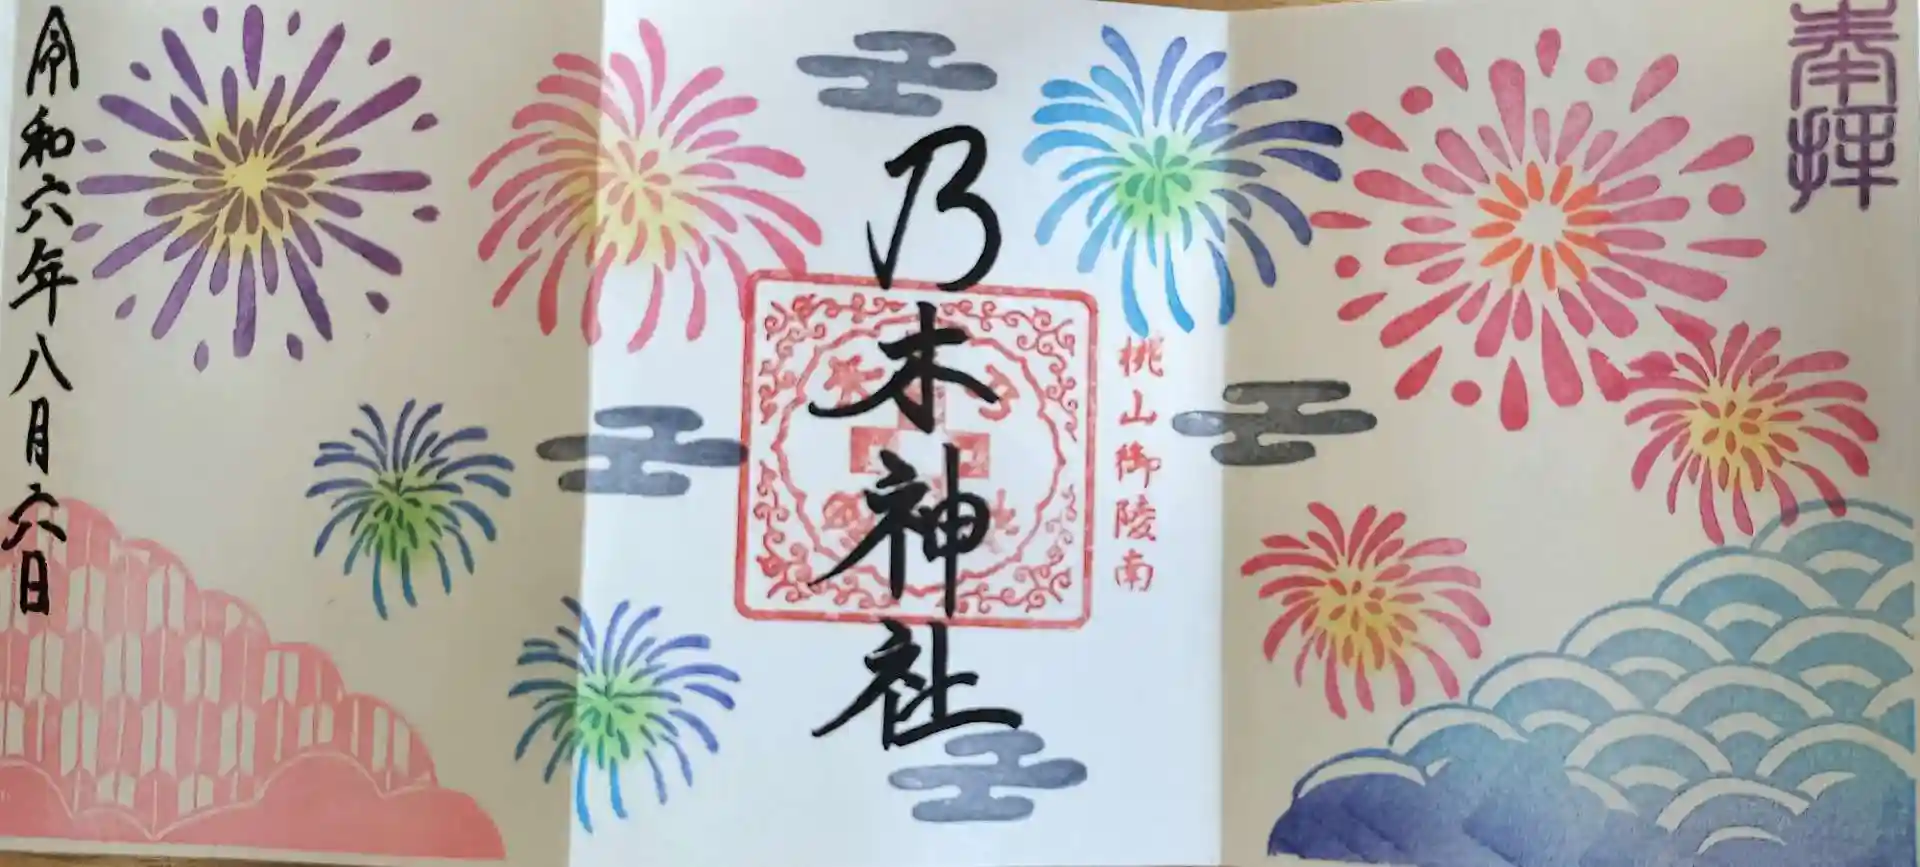 奉拝
桃山御陵南
乃木神社
令和六年八月六日